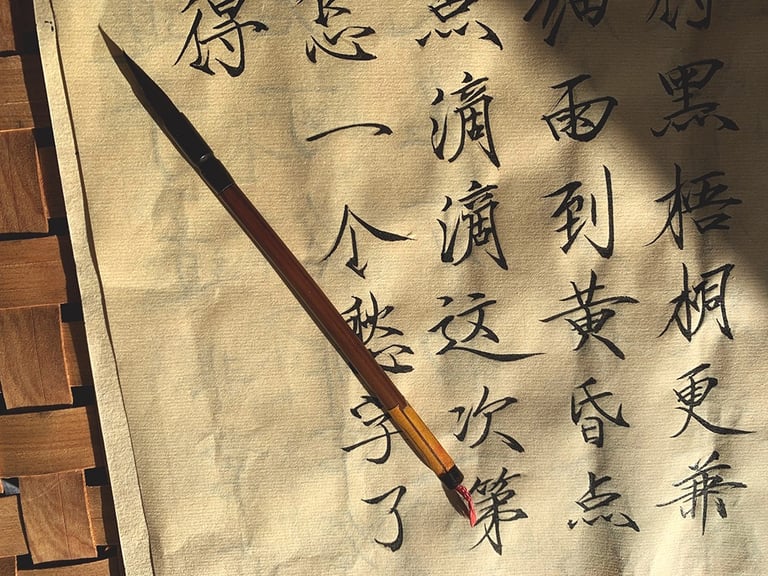 黑梧桐更兼
雨到黄昏点
点滴滴这次第
怎一个愁字了
得